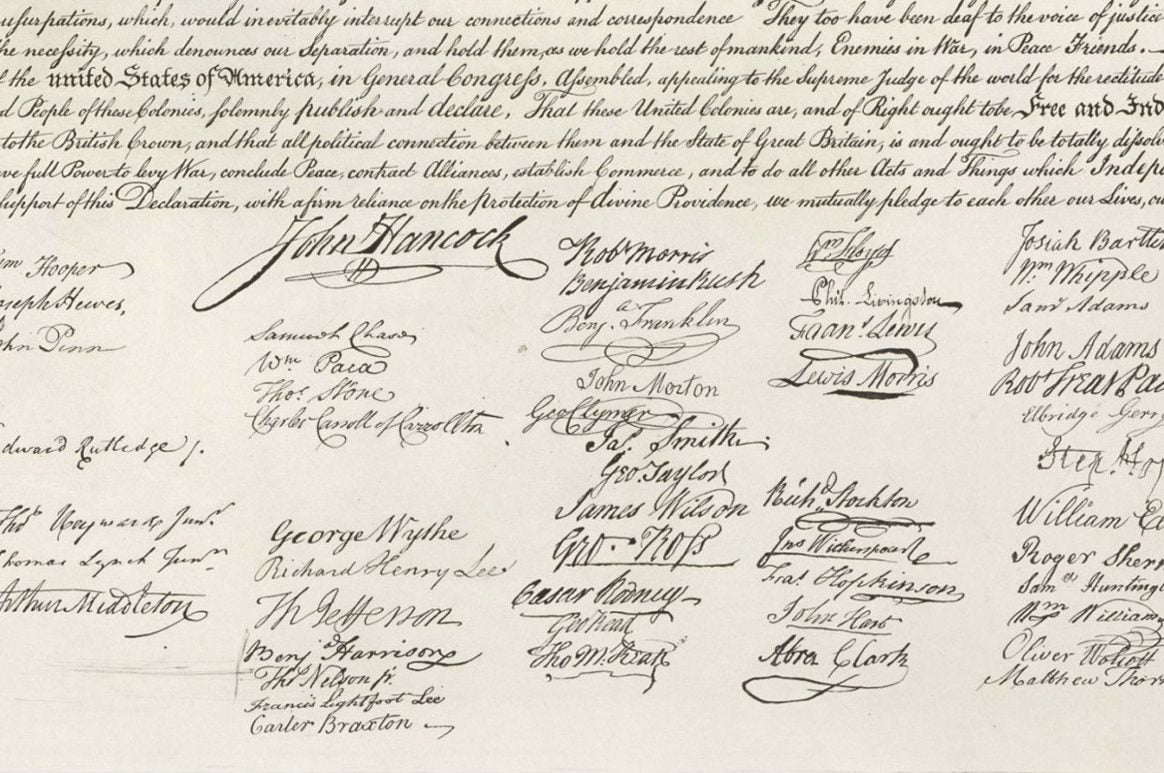 usurpations, which, would inevitably interrupt our connections and correspondence They too have been deaf to the voice of justice
he necessity, which denounces our Separation, and hold them, as we hold the rest of mankind, Enemies in War, in Peace Friends. —
f the united States of America, in General Congress, Assembled, appealing to the Supreme Judge of the world for the rectitude
d People of these Colonies, solemnly publish and declare, That these United Colonies are, and of Right ought to be Free and Ind
to the British Crown, and that all political connection between them and the State of Great Britain, is and ought to be totally dissolv
ve full Power to levy War, conclude Peace, contract Alliances, establish Commerce, and to do all other Acts and Things which Indepe
support of this Declaration, with a firm reliance on the protection of divine Providence, we mutually pledge to each other our Lives, ou
m Hooper
oseph Hewes,
hn Penn
dward Rutledge /.
Tho.s Heyward Junr.
homas Lynch Junr.
Arthur Middleton
John Hancock
Samuel Chase
Wm. Paca
Thos. Stone
Charles Carroll of Carrollton
George Wythe
Richard Henry Lee
Th Jefferson
Benja Harrison
Thos Nelson jr.
Francis Lightfoot Lee
Carter Braxton
Robt Morris
Benjamin Rush
Benja. Franklin
John Morton
Geo Clymer
Jas. Smith
Geo. Taylor
James Wilson
Geo. Ross
Caesar Rodney
Geo Read
Tho M:Kean
Wm Floyd
Phil. Livingston
Frans. Lewis
Lewis Morris
Richd. Stockton
Jno Witherspoon
Fras. Hopkinson
John Hart
Abra Clark
Josiah Bartle
Wm. Whipple
Saml Adams
John Adams
Robt Treat Pai
Elbridge Gerry
Step. Hop
William El
Roger Sherr
Saml Hunting
Wm Williams
Oliver Wolcott
Matthew Thor